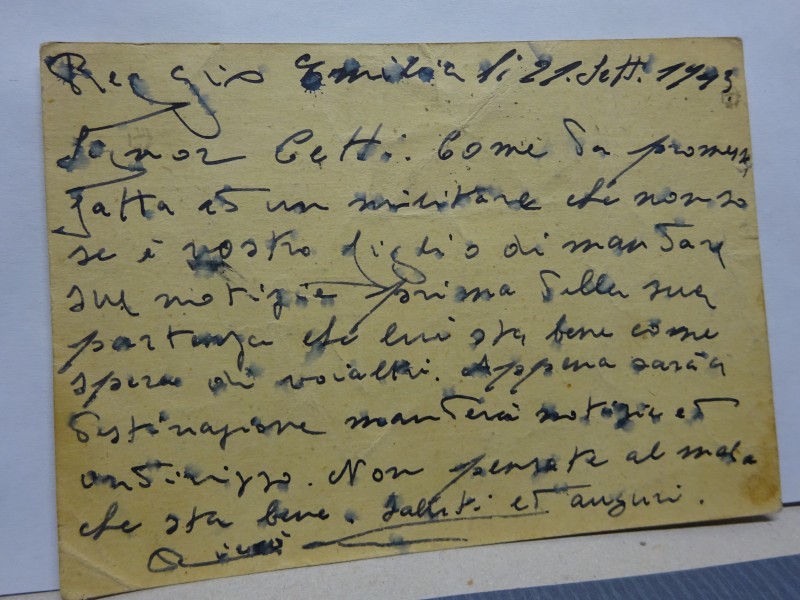 Reggio Emilia li 21. Sett. 1943
Signor Cetti. Come da promessa
fatta ad un militare che non so
se è vostro figlio di mandare
sue notizie prima della sua
partenza che lui sta bene come
spera di voialtri. Appena sarà a
destinazione manderà notizie ed
indirizzo. Non pensate al male
che sta bene. Saluti ed auguri.